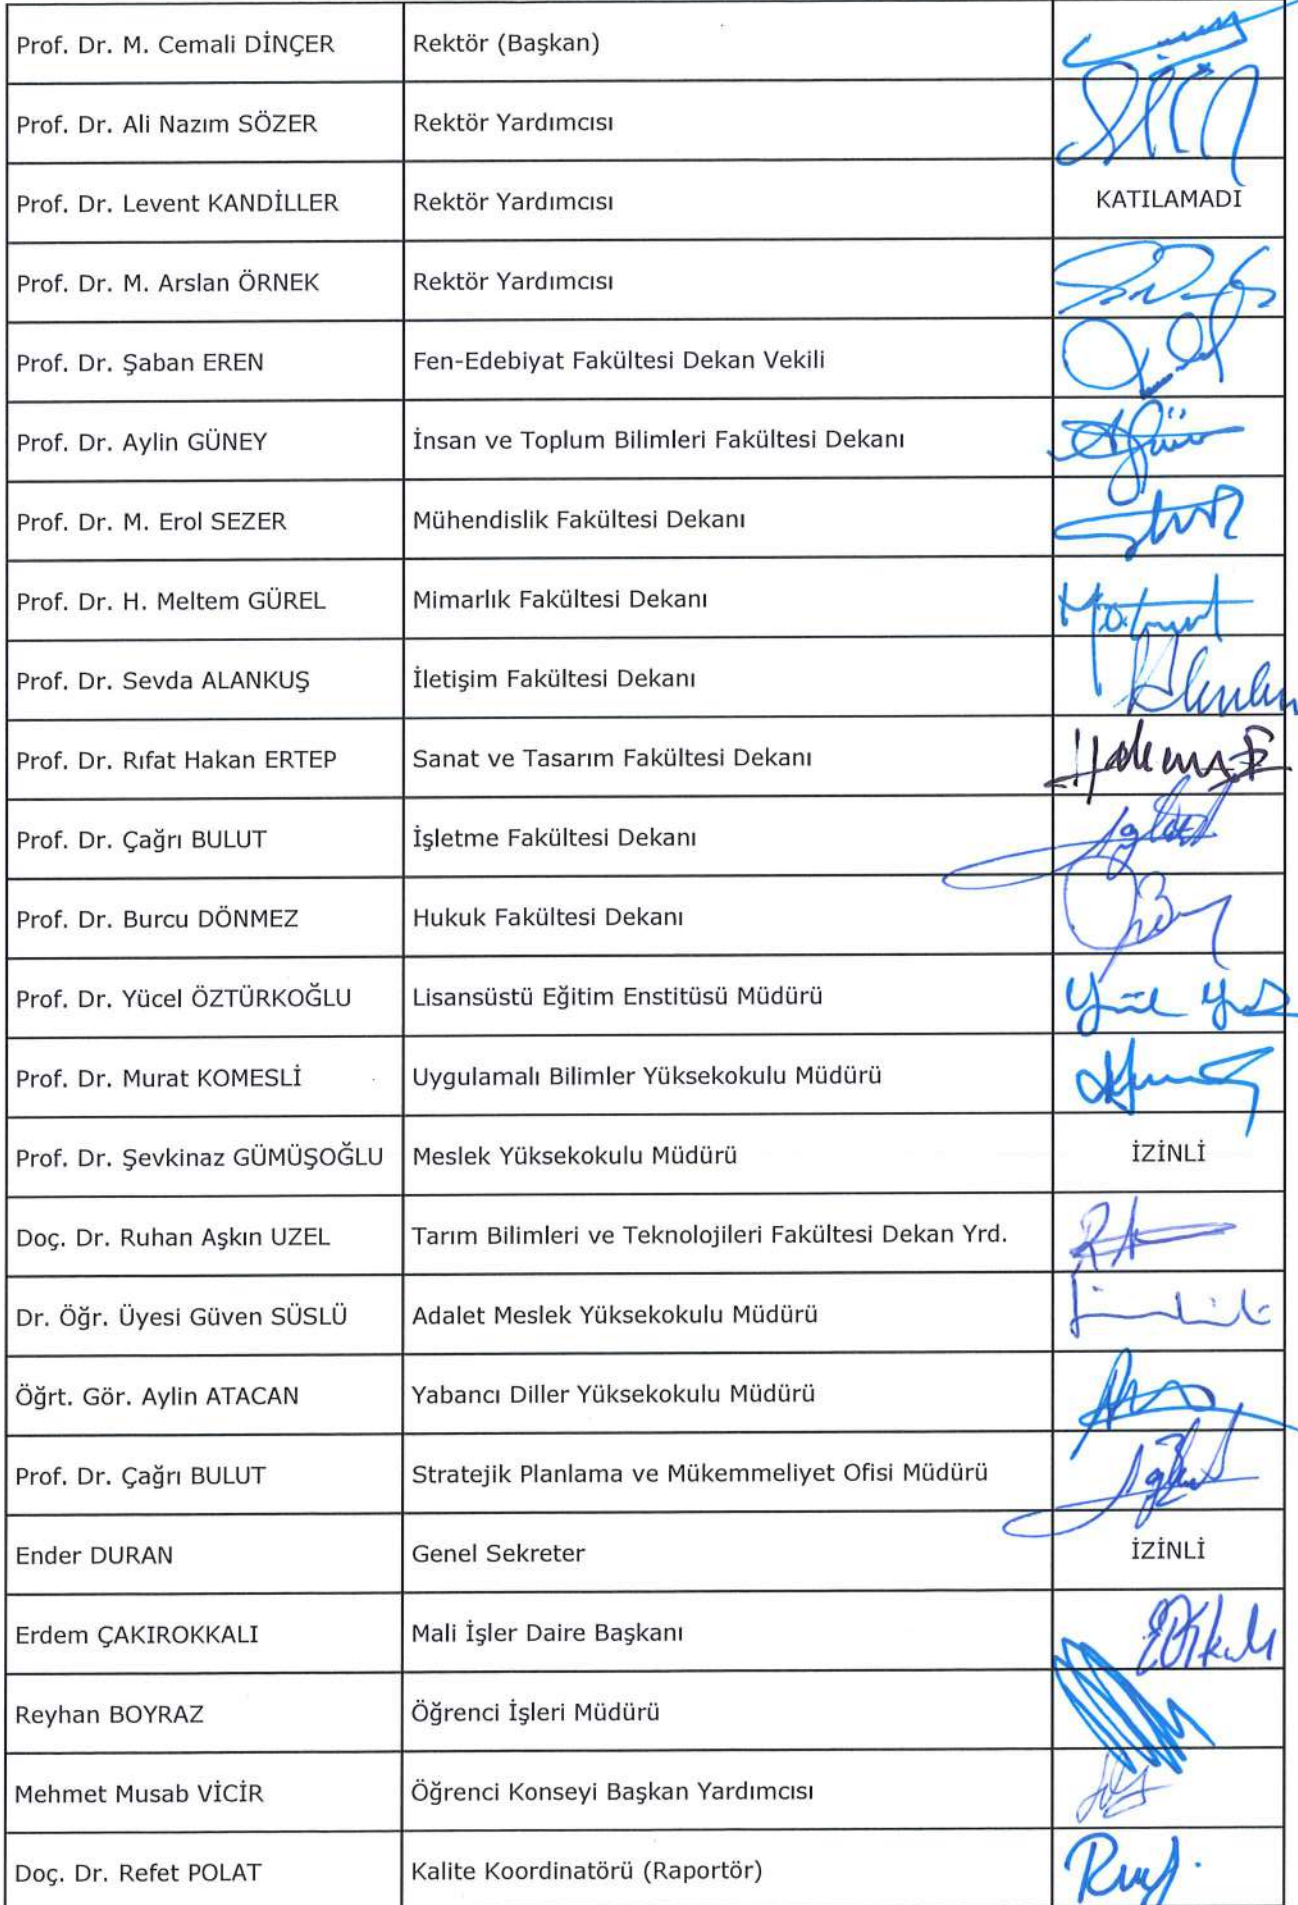 Prof. Dr. M. Cemali DİNÇER Rektör (Başkan)
Prof. Dr. Ali Nazım SÖZER Rektör Yardımcısı
Prof. Dr. Levent KANDİLLER Rektör Yardımcısı KATILAMADI
Prof. Dr. M. Arslan ÖRNEK Rektör Yardımcısı
Prof. Dr. Şaban EREN Fen-Edebiyat Fakültesi Dekan Vekili
Prof. Dr. Aylin GÜNEY İnsan ve Toplum Bilimleri Fakültesi Dekanı
Prof. Dr. M. Erol SEZER Mühendislik Fakültesi Dekanı
Prof. Dr. H. Meltem GÜREL Mimarlık Fakültesi Dekanı
Prof. Dr. Sevda ALANKUŞ İletişim Fakültesi Dekanı
Prof. Dr. Rıfat Hakan ERTEP Sanat ve Tasarım Fakültesi Dekanı
Prof. Dr. Çağrı BULUT İşletme Fakültesi Dekanı
Prof. Dr. Burcu DÖNMEZ Hukuk Fakültesi Dekanı
Prof. Dr. Yücel ÖZTÜRKOĞLU Lisansüstü Eğitim Enstitüsü Müdürü
Prof. Dr. Murat KOMESLİ Uygulamalı Bilimler Yüksekokulu Müdürü
Prof. Dr. Şevkinaz GÜMÜŞOĞLU Meslek Yüksekokulu Müdürü İZİNLİ
Doç. Dr. Ruhan Aşkın UZEL Tarım Bilimleri ve Teknolojileri Fakültesi Dekan Yrd.
Dr. Öğr. Üyesi Güven SÜSLÜ Adalet Meslek Yüksekokulu Müdürü
Öğrt. Gör. Aylin ATACAN Yabancı Diller Yüksekokulu Müdürü
Prof. Dr. Çağrı BULUT Stratejik Planlama ve Mükemmeliyet Ofisi Müdürü
Ender DURAN Genel Sekreter İZİNLİ
Erdem ÇAKIROKKALI Mali İşler Daire Başkanı
Reyhan BOYRAZ Öğrenci İşleri Müdürü
Mehmet Musab VİCİR Öğrenci Konseyi Başkan Yardımcısı
Doç. Dr. Refet POLAT Kalite Koordinatörü (Raportör)